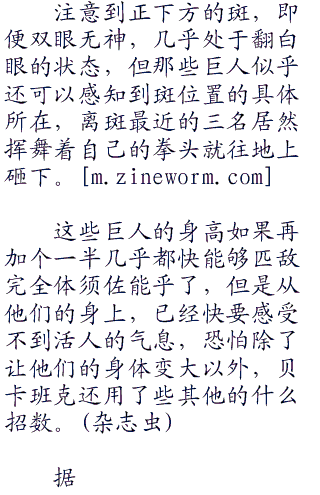 注意到正下方的斑，即
便双眼无神，几乎处于翻白
眼的状态，但那些巨人似乎
还可以感知到斑位置的具体
所在，离斑最近的三名居然
挥舞着自己的拳头就往地上
砸下。[m.zineworm.com]
这些巨人的身高如果再
加个一半几乎都快能够匹敌
完全体须佐能乎了，但是从
他们的身上，已经快要感受
不到活人的气息，恐怕除了
让他们的身体变大以外，贝
卡班克还用了些其他的什么
招数。(杂志虫)
据